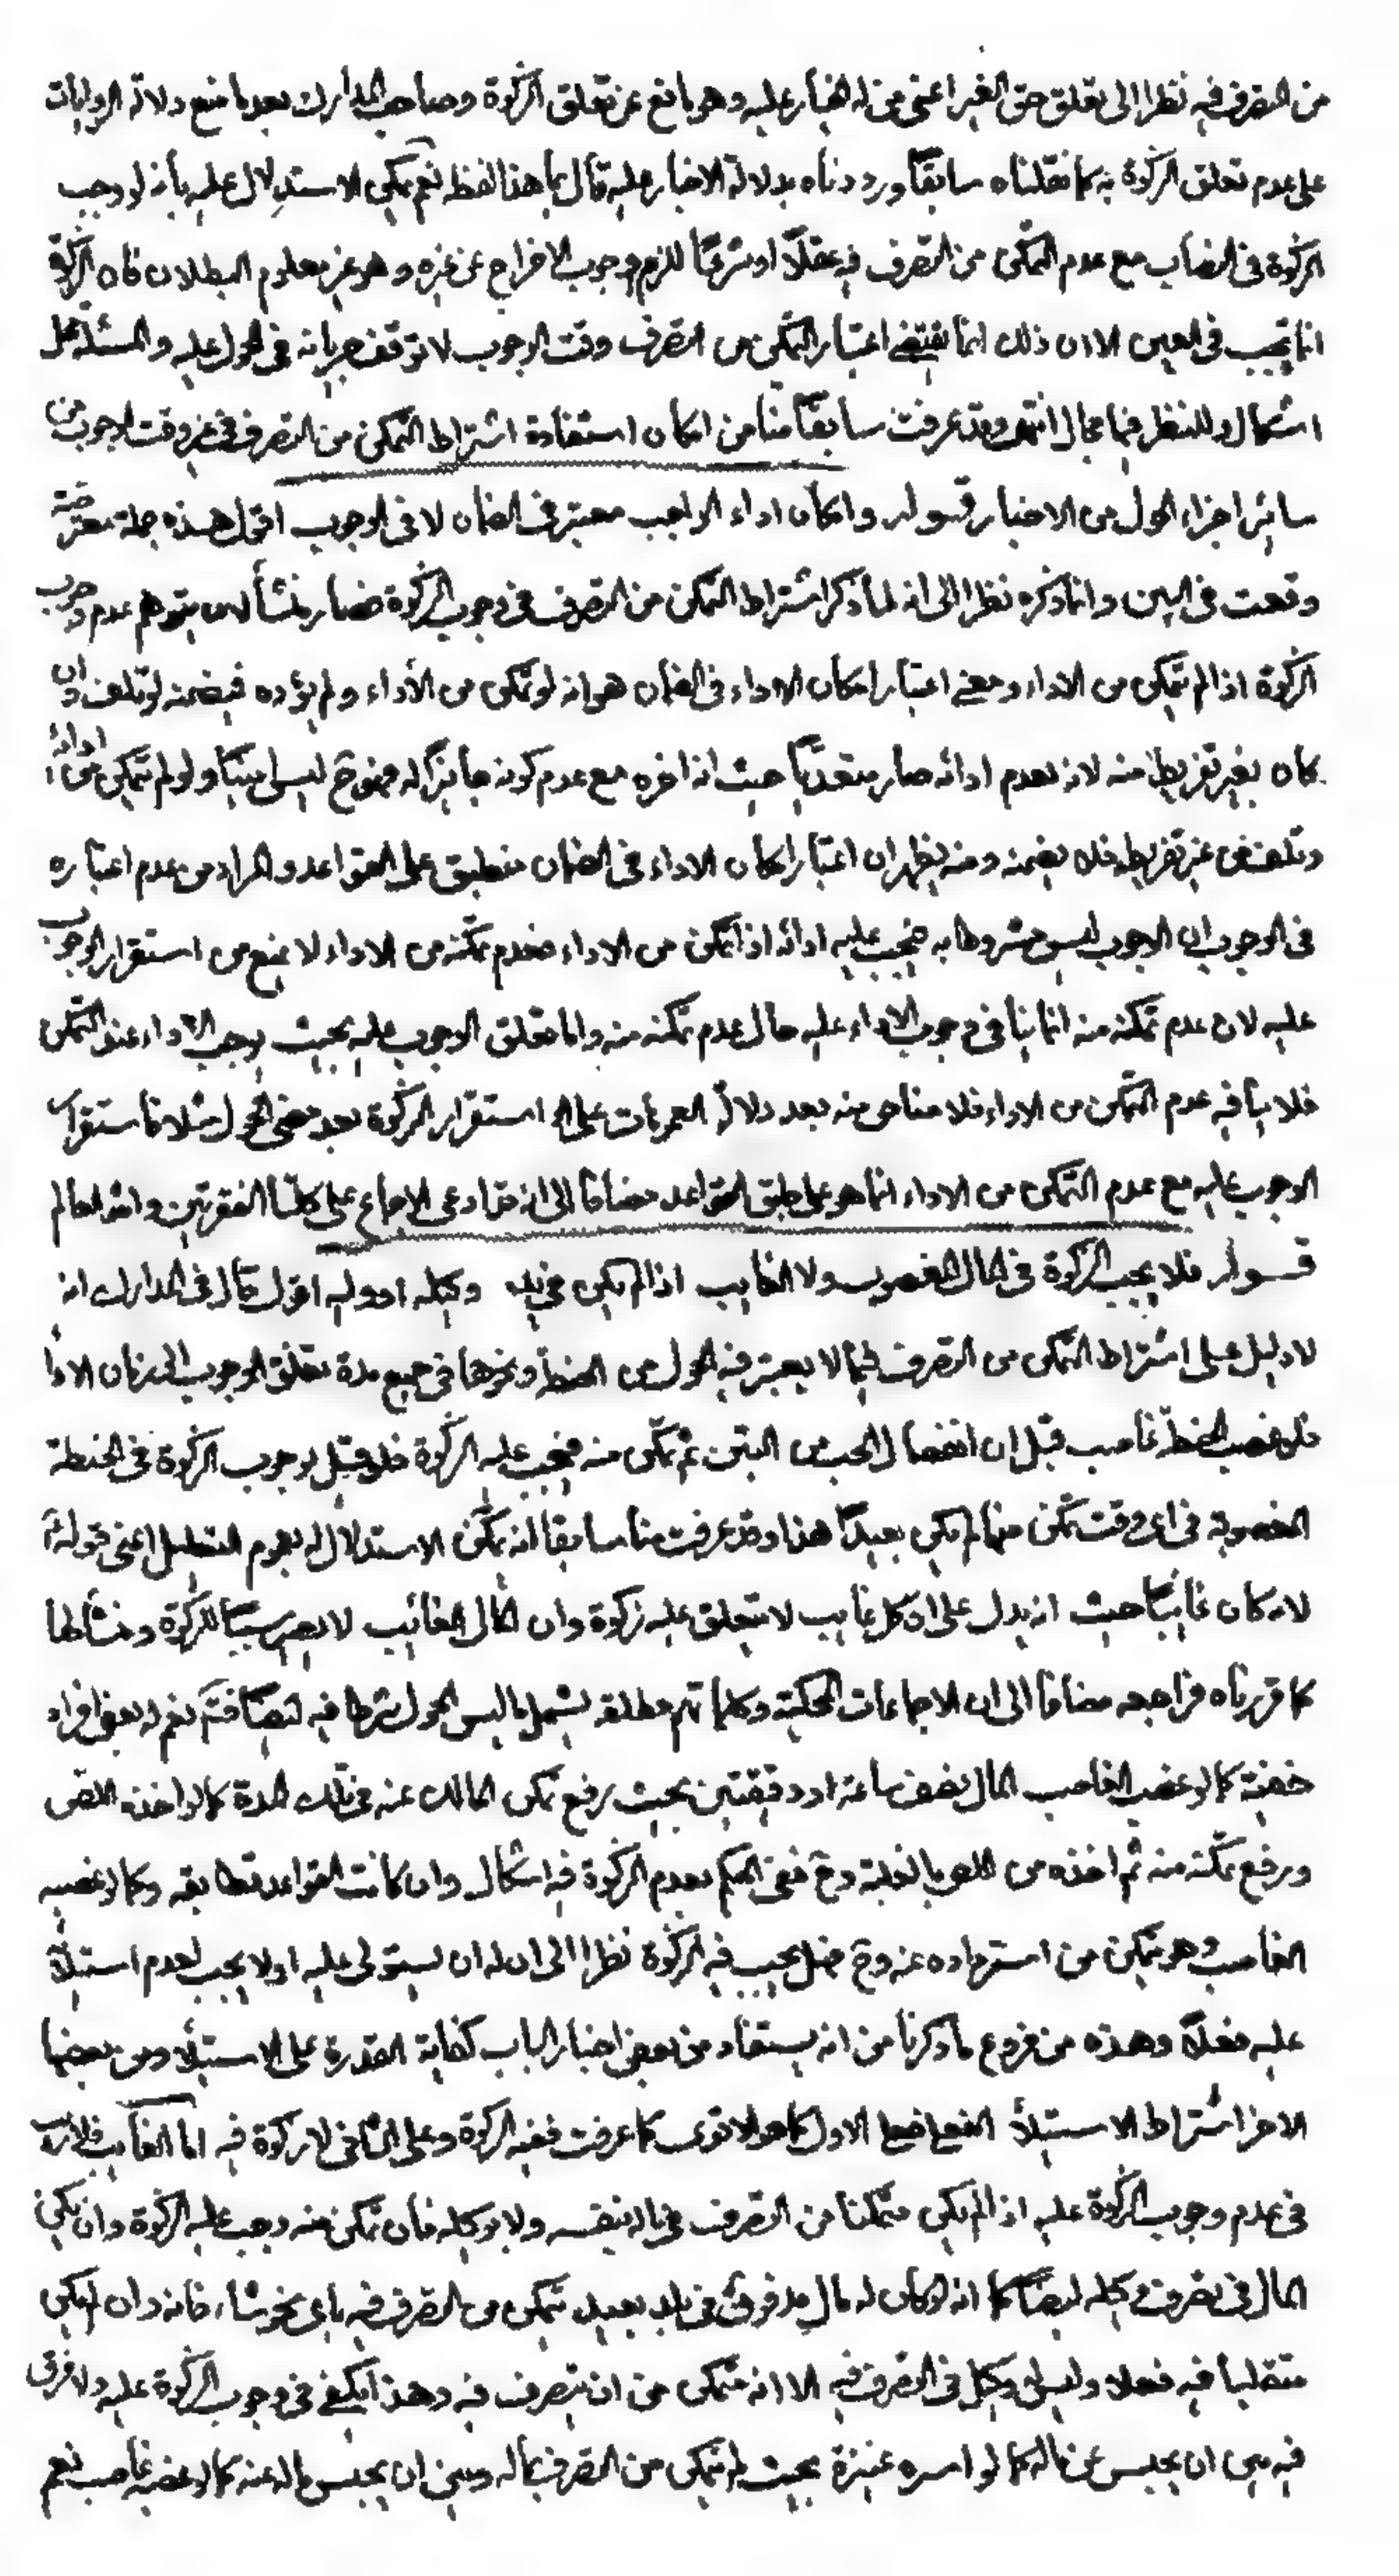 من التصرف فيه نظرا الى تعلق حق الغير اعني من له الخيار عليه وهو مانع عن تعلق الزكوة وصاحب المدارك بعد ما منع دلالة الروايات
على عدم تعلق الزكوة به كما نقلناه سابقاً ورددناه بدلالة الاخبار عليه قال ما هذا لفظه نعم يمكن الاستدلال عليه بأنه لو وجب
الزكوة في النصاب مع عدم التمكن من التصرف فيه عقلاً او شرعاً للزم وجوب الاخراج عن غيره وهو غير معلوم البطلان فان الزكوة
انما تجب في العين الا ان ذلك انما يقتضي اعتبار التمكن من التصرف وقت الوجوب لا توقف جريانه في الحول عليه والمسئلة محل
اشكال وللنظر فيها مجال انتهى وقد عرفت سابقاً منا من امكان استفادة اشتراط التمكن من التصرف في غير وقت الوجوب من
سائر اجزاء الحول من الاخبار قوله وامكان اداء الواجب معتبر في الضمان لا في الوجوب اقول هذه جملة معترضة
وقعت في البين وانما ذكره نظرا الى انه لما ذكر اشتراط التمكن من التصرف في وجوب الزكوة فصار منشأ لان يتوهم عدم وجوب
الزكوة اذا لم يتمكن من الاداء ومعنى اعتبار امكان الاداء في الضمان هو انه لو تمكن من الأداء ولم يؤده فيضمنه لو تلف وان
كان بغير تفريط منه لانه بعدم ادائه صار متعدياً حيث انه اخره مع عدم كونه جايزاً له فهو ح ليس امينا ولو لم يتمكن من ادائه
وتلف من غير تفريط فلا يضمنه ومنه يظهر ان اعتبار امكان الاداء في الضمان منطبق على القواعد والمراد من عدم اعتباره
في الوجوب ان الوجوب ليس مشروطا به فيجب عليه ادائه اذا تمكن من الاداء فعدم تمكنه من الاداء لا يمنع من استقرار الوجوب
عليه لان عدم تمكنه منه انما ينافي وجوب الاداء عليه حال عدم تمكنه منه واما تعلق الوجوب عليه بحيث يوجب الاداء عند التمكن
فلا ينافيه عدم التمكن من الاداء فلا مناص منه بعد دلالة العمومات على استقرار الزكوة بعد مضى الحول مثلا فاستقرار
الوجوب عليه مع عدم التمكن من الاداء انما هو على طبق القواعد مضافا الى انه قد ادعى الاجماع على كلتا الفقرتين والله العالم
قوله فلا يجب الزكوة في المال المغصوب ولا الغايب اذا لم يكن في يد وكيله او وليه اقول قال في المدارك انه
لا دليل على اشتراط التمكن من التصرف فيما لا يعتبر فيه الحول من الحنطة ونحوها في جميع مدة تعلق الوجوب الى زمان الاداء
فلو غصب الحنطة غاصب قبل ان انفصال الحب من التبن ثم تمكن منه فيجب عليه الزكوة فلو قيل بوجوب الزكوة في الحنطة
المغصوبة في اى وقت تمكن منها لم يكن بعيداً هذا وقد عرفت منا سابقا انه يمكن الاستدلال له بعموم التعليل اعني قوله
لانه كان غائباً حيث انه يدل على ان كل غايب لا يتعلق عليه زكوة وان المال الغائب لا يصير سبباً للزكوة ومنشأ لها
كما قررناه فراجعه مضافا الى ان الاجماعات المحكية وكلماتهم مطلقة يشمل ما ليس الحول شرطا فيه ايضاً فتم نعم له بعض افراد
خفية كما لو غصب الغاصب المال نصف ساعة او دقيقتين بحيث رفع تمكن المالك عنه في تلك المدة كما لو اخذه اللص
ورفع تمكنه منه ثم اخذه من اللص بالغلبة وح ففي الحكم بعدم الزكوة فيه اشكال وان كانت القواعد تطابقه وكما لو غصبه
الغاصب وهو متمكن من استرداده عنه وح فهل يجب فيه الزكوة نظرا الى ان له ان يستولى عليه او لا يجب لعدم استيلائه
عليه فعلاً وهذه من فروع ما ذكرنا من انه يستفاد من بعض اخبار الباب كفاية القدرة على الاستيلاء ومن بعضها
الاخر اشتراط الاستيلاء الفعلي فعلى الاول كما هو الاقوى كما عرفت ففيه الزكوة وعلى الثاني لا زكوة فيه اما الغايب فلا ريب
في عدم وجوب الزكوة عليه اذا لم يكن متمكنا من التصرف في ماله بنفسه ولا بوكيله فان تمكن منه وجب عليه الزكوة وان لم يكن
المال في تصرف وكيله ايضاً كما انه لو كان له مال مدفون في بلد بعيد يتمكن من التصرف فيه باى نحو شاء فانه وان لم يكن
متقلبا فيه فعلا وليس له وكيل في التصرف فيه الا انه متمكن من ان يتصرف فيه وهذا يكفي في وجوب الزكوة عليه ولا فرق
فيه بين ان يحبس عن ماله كما لو اسره عنيزة بحيث لم يتمكن من التصرف بماله وبين ان يحبس ماله عنه كما لو غصبه غاصب نعم